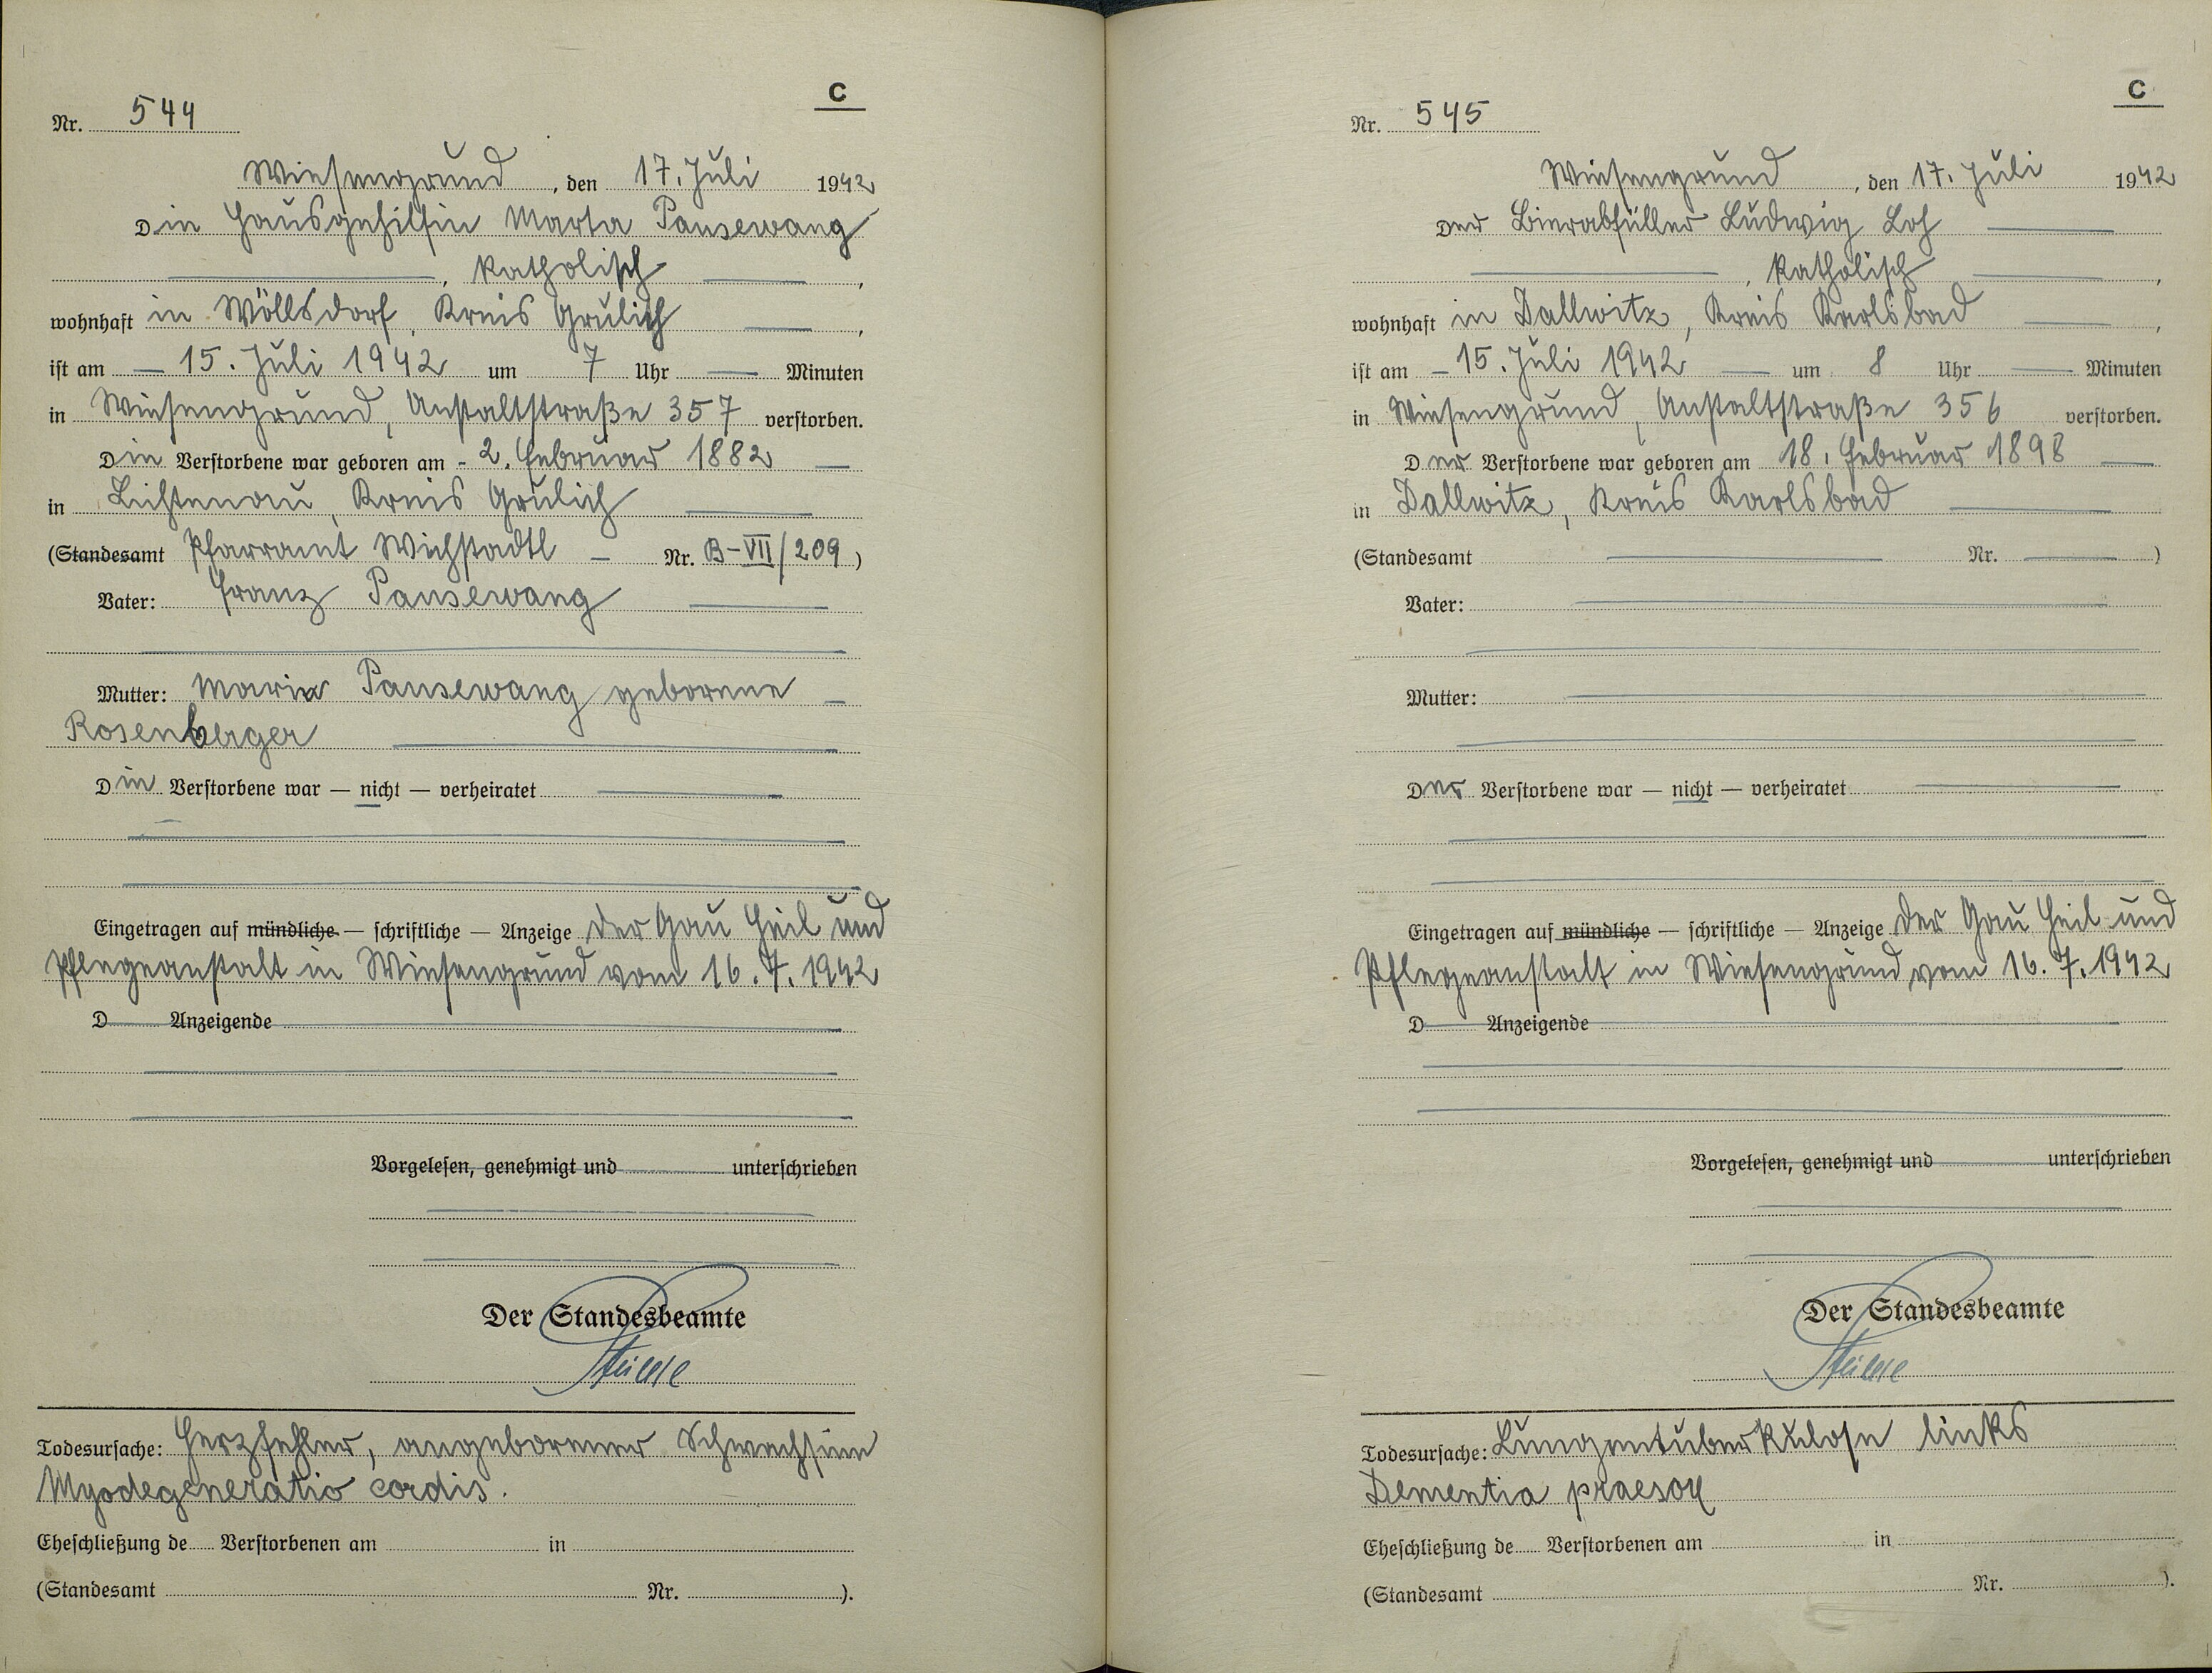 C
Nr. 544
Wiesengrund, den 17. Juli 1942
Die Hausgehilfin Marta Pausewang
, katholisch,
wohnhaft in Wöllsdorf, Kreis Grulich,
ist am 15. Juli 1942 um 7 Uhr Minuten
in Wiesengrund, Anstaltstraße 357 verstorben.
Die Verstorbene war geboren am 2. Februar 1882
in Lichtenau, Kreis Grulich
(Standesamt Pfarramt Wichstadtl Nr. B-VII/209)
Vater: Franz Pausewang
Mutter: Maria Pausewang geborene
Rosenberger
Die Verstorbene war — nicht — verheiratet
Eingetragen auf mündliche — schriftliche — Anzeige der Gau Heil und
Pflegeanstalt in Wiesengrund vom 16. 7. 1942
D Anzeigende
Vorgelesen, genehmigt und unterschrieben
Der Standesbeamte
Todesursache: Herzfehler, angeborener Schwachsinn
Myodegeneratio cordis.
Eheschließung de Verstorbenen am in
(Standesamt Nr. ).
C
Nr. 545
Wiesengrund, den 17. Juli 1942
Der Bierabfüller Ludwig Loh
, katholisch,
wohnhaft in Dallwitz, Kreis Karlsbad,
ist am 15. Juli 1942 um 8 Uhr Minuten
in Wiesengrund, Anstaltstraße 356 verstorben.
Der Verstorbene war geboren am 18. Februar 1898
in Dallwitz, Kreis Karlsbad
(Standesamt Nr. )
Vater:
Mutter:
Der Verstorbene war — nicht — verheiratet
Eingetragen auf mündliche — schriftliche — Anzeige der Gau Heil und
Pflegeanstalt in Wiesengrund vom 16. 7. 1942
D Anzeigende
Vorgelesen, genehmigt und unterschrieben
Der Standesbeamte
Todesursache: Lungentuberkulose links
Dementia praesox
Eheschließung de Verstorbenen am in
(Standesamt Nr. ).